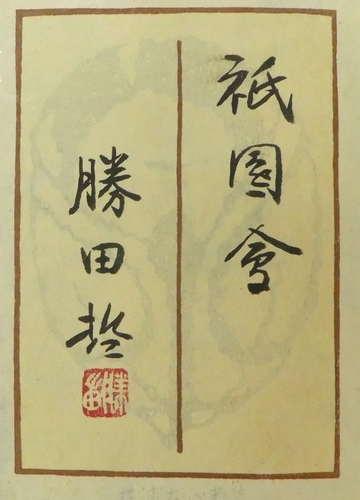 祇園會
勝田哲